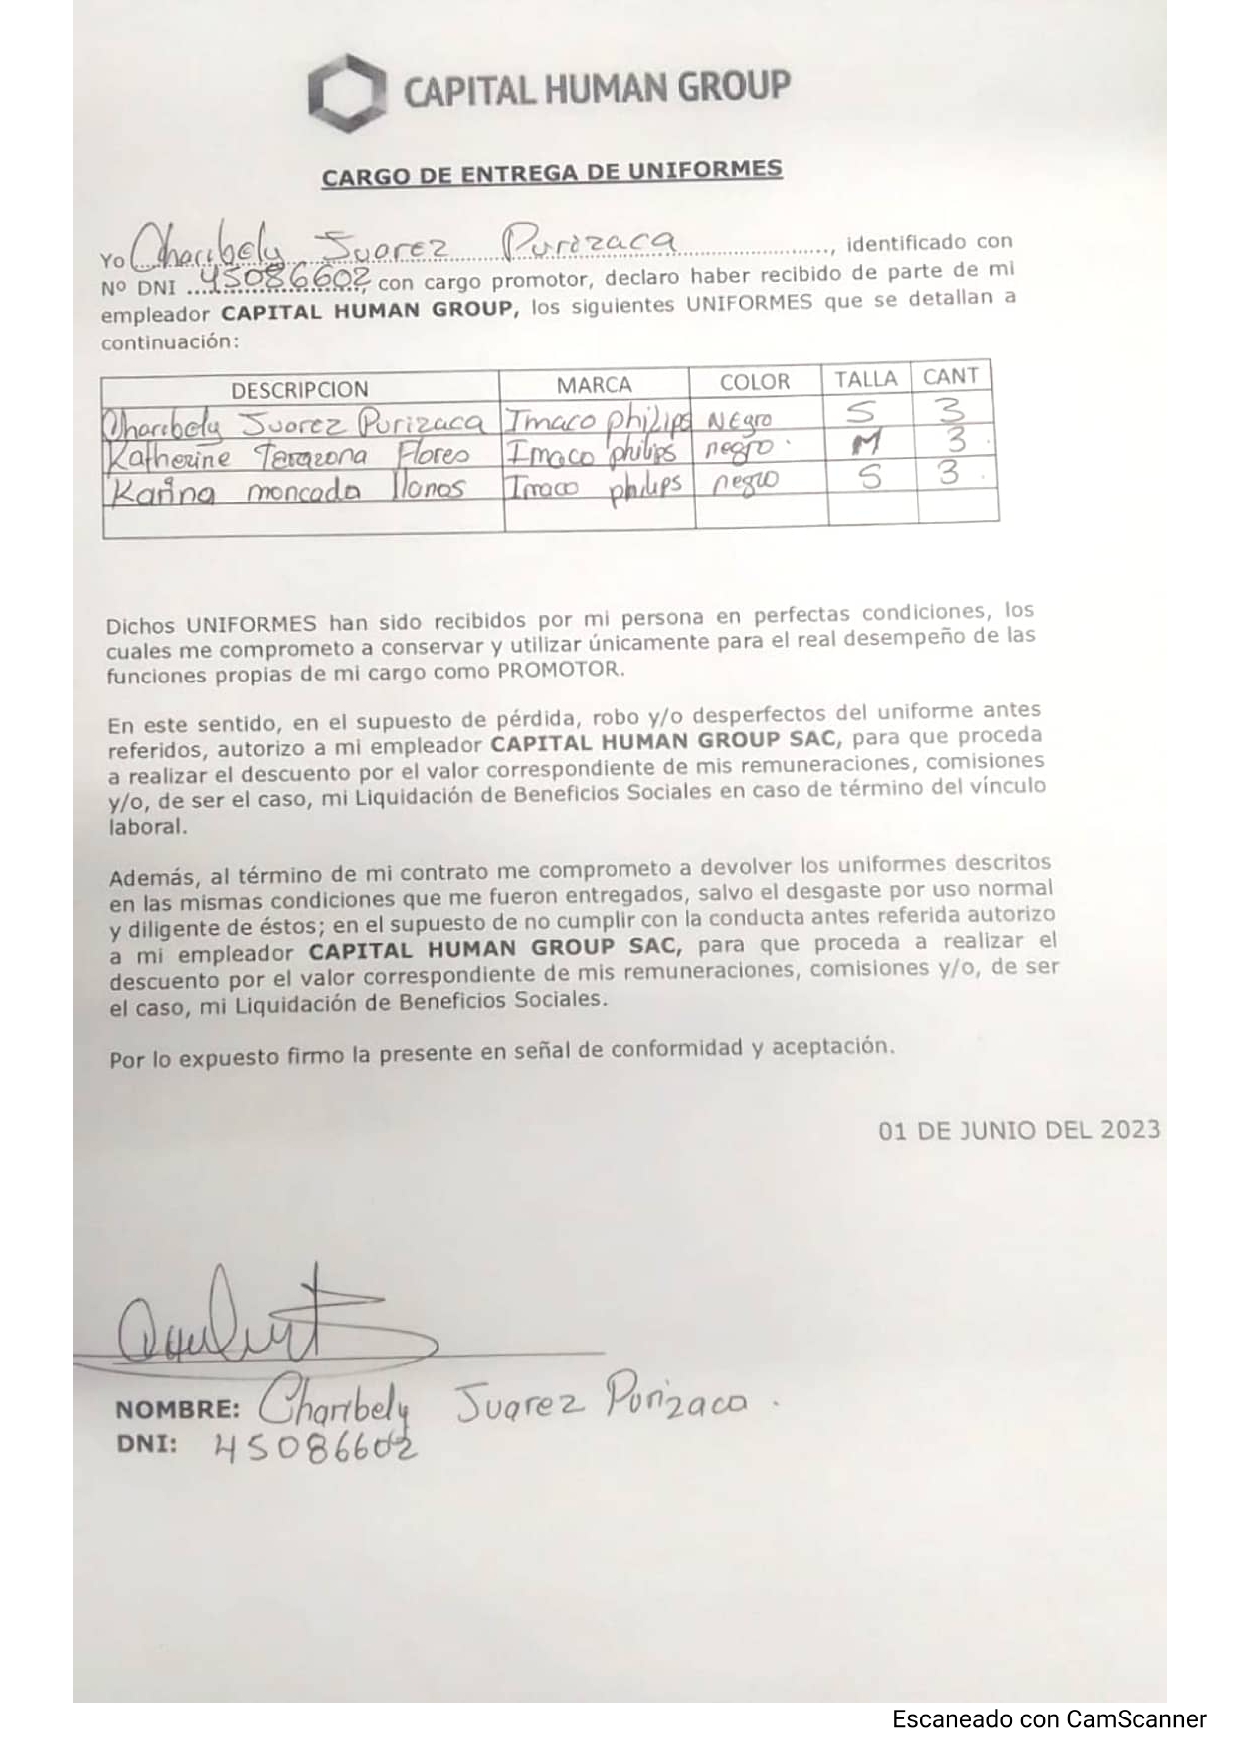 CAPITAL HUMAN GROUP
CARGO DE ENTREGA DE UNIFORMES
Yo Charibely Juarez Purizaca ..............................., identificado con
Nº DNI ....45086602 con cargo promotor, declaro haber recibido de parte de mi
empleador CAPITAL HUMAN GROUP, los siguientes UNIFORMES que se detallan a
continuación:
DESCRIPCION MARCA COLOR TALLA CANT
Charibely Juarez Purizaca Imaco philips NEgro S 3
Katherine Terazona Flores Imaco philips negro M 3
Karina moncada llonos Imaco philips negro S 3
Dichos UNIFORMES han sido recibidos por mi persona en perfectas condiciones, los
cuales me comprometo a conservar y utilizar únicamente para el real desempeño de las
funciones propias de mi cargo como PROMOTOR.
En este sentido, en el supuesto de pérdida, robo y/o desperfectos del uniforme antes
referidos, autorizo a mi empleador CAPITAL HUMAN GROUP SAC, para que proceda
a realizar el descuento por el valor correspondiente de mis remuneraciones, comisiones
y/o, de ser el caso, mi Liquidación de Beneficios Sociales en caso de término del vínculo
laboral.
Además, al término de mi contrato me comprometo a devolver los uniformes descritos
en las mismas condiciones que me fueron entregados, salvo el desgaste por uso normal
y diligente de éstos; en el supuesto de no cumplir con la conducta antes referida autorizo
a mi empleador CAPITAL HUMAN GROUP SAC, para que proceda a realizar el
descuento por el valor correspondiente de mis remuneraciones, comisiones y/o, de ser
el caso, mi Liquidación de Beneficios Sociales.
Por lo expuesto firmo la presente en señal de conformidad y aceptación.
01 DE JUNIO DEL 2023
NOMBRE: Charibely Juarez Purizaca.
DNI: 45086602
Escaneado con CamScanner